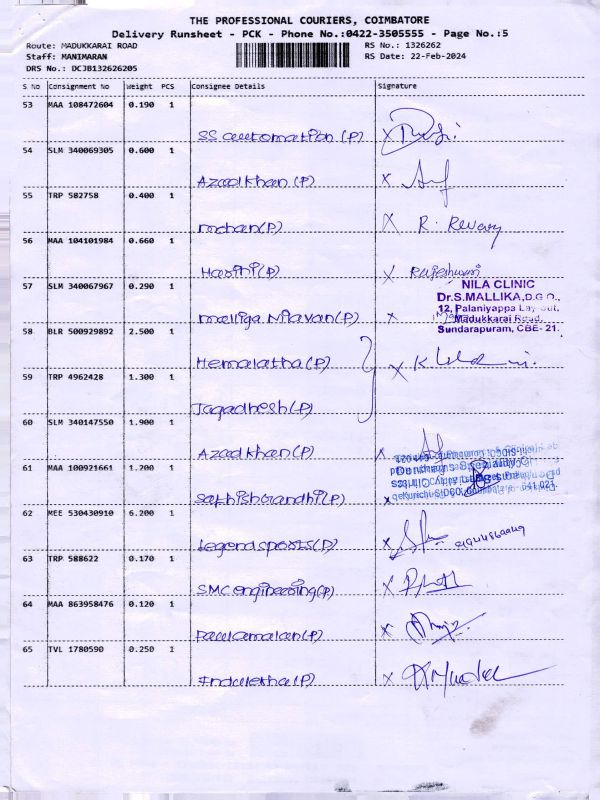 THE PROFESSIONAL COURIERS, COIMBATORE
Delivery Runsheet - PCK - Phone No.:0422-3505555 - Page No.:5
Route: MADUKKARAI ROAD RS No.: 1326262
Staff: MANIMARAN RS Date: 22-Feb-2024
DRS No.: DCJB132626205
S No Consignment No Weight PCS Consignee Details Signature
53 MAA 108472604 0.190 1
SS automation (P) X
54 SLM 340069305 0.600 1
Azad khan (P) X
55 TRP 582758 0.400 1
mohan (P) X R. Revathy
56 MAA 104101984 0.660 1
Harini (P) X Rajeshwari
57 SLM 340067967 0.290 1
NILA CLINIC
Dr.S.MALLIKA,D.G.O.,
12, Palaniyappa Lay-out,
Madukkarai Road,
Sundarapuram, CBE- 21.
malliga Nilavan (P) X
58 BLR 500929892 2.500 1
Hemalatha (P) X
59 TRP 4962428 1.300 1
Jagadhesh (P)
60 SLM 340147550 1.900 1
Azad khan (P) X
61 MAA 100921661 1.200 1
Sathish Gandhi (P) X
62 MEE 530430910 6.200 1
Legend sports (P) X
63 TRP 588622 0.170 1
SMC engineering (P) X
64 MAA 863958476 0.120 1
X
65 TVL 1780590 0.250 1
Indulekha (P) X